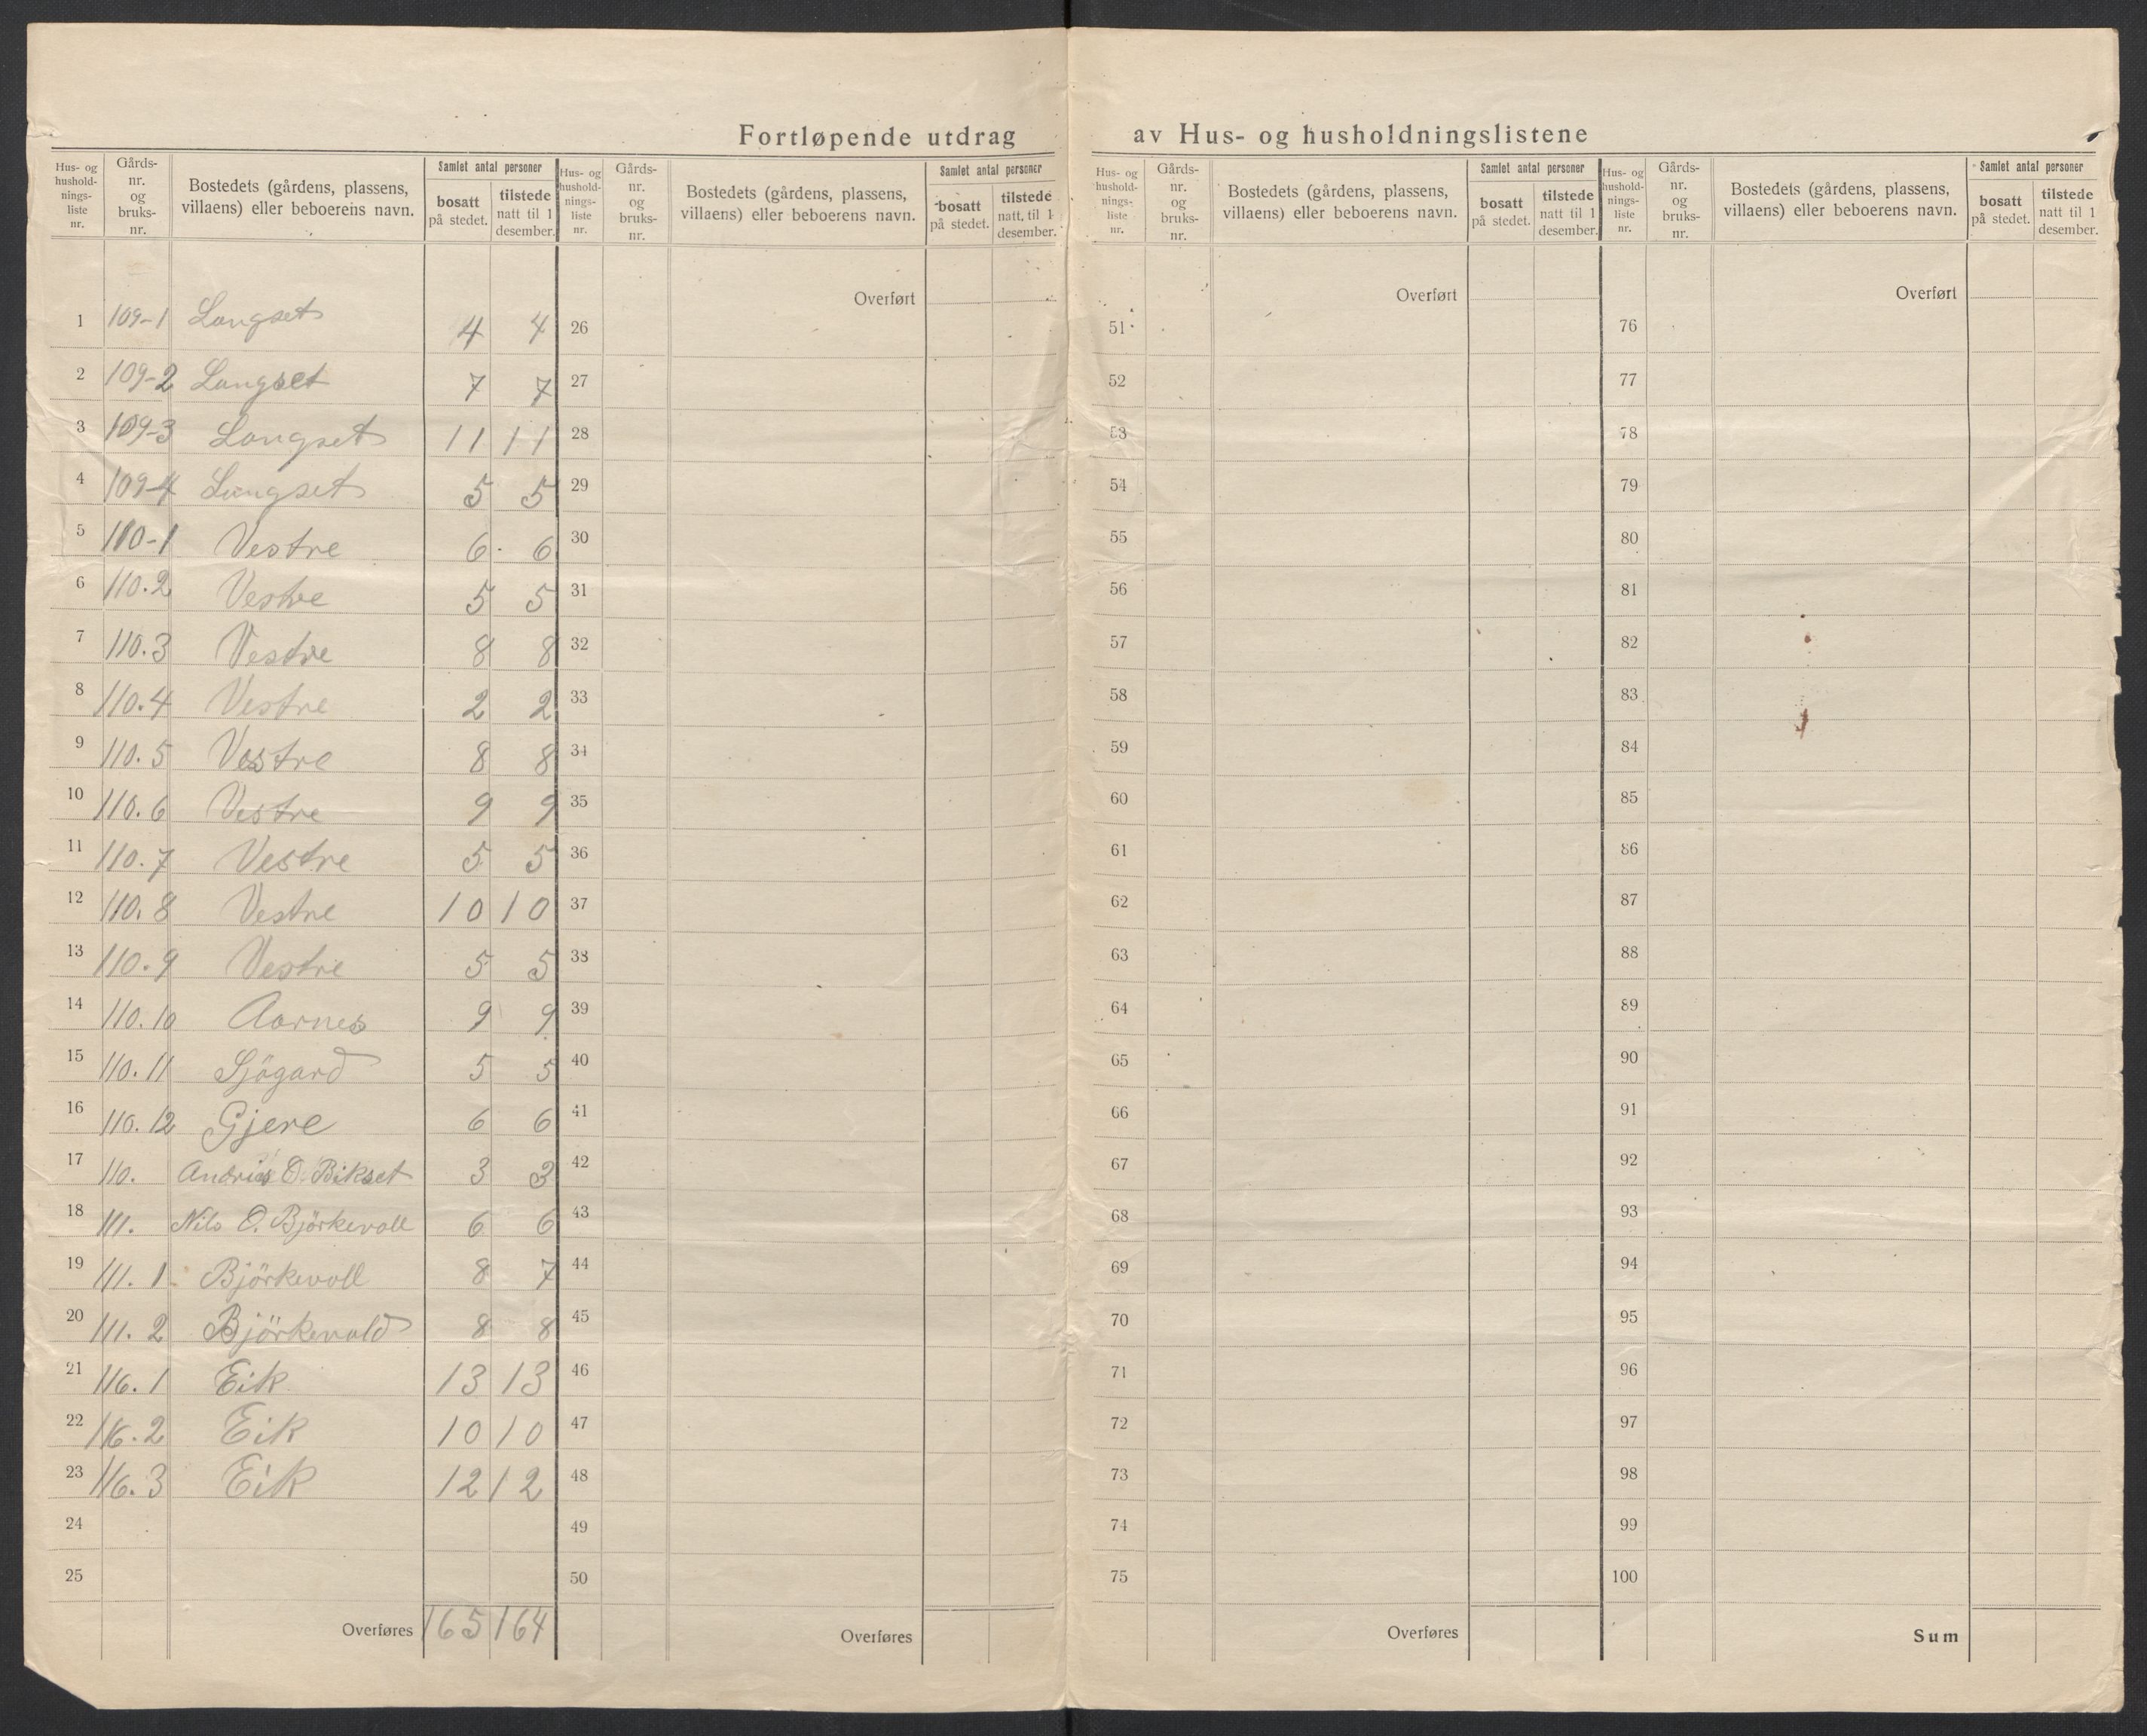 Fortløpende utdrag av Hus- og husholdningslistene
Hus- og hushold-nings-liste nr. Gårds-nr. og bruks-nr. Bostedets (gårdens, plassens, villaens) eller beboerens navn. Samlet antal personer bosatt på stedet. tilstede natt til 1 desember.
1 109-1 Langset 4 4
2 109-2 Langset 7 7
3 109-3 Langset 11 11
4 109-4 Langset 5 5
5 110-1 Vestre 6 6
6 110.2 Vestre 5 5
7 110.3 Vestre 8 8
8 110.4 Vestre 2 2
9 110.5 Vestre 8 8
10 110.6 Vestre 9 9
11 110.7 Vestre 5 5
12 110.8 Vestre 10 10
13 110.9 Vestre 5 5
14 110.10 Aarnes 9 9
15 110.11 Sjögard 5 5
16 110.12 Gjere 6 6
17 110. Andrias O. Bikset 3 3
18 111. Nils O. Björkevoll 6 6
19 111.1 Björkevoll 8 7
20 111.2 Björkevold 8 8
21 116.1 Eik 13 13
22 116.2 Eik 10 10
23 116.3 Eik 12 12
24
25
Overføres 165 164
Hus- og hushold-nings-liste nr. Gårds-nr. og bruks-nr. Bostedets (gårdens, plassens, villaens) eller beboerens navn. Samlet antal personer bosatt på stedet. tilstede natt til 1 desember.
Overført
26
27
28
29
30
31
32
33
34
35
36
37
38
39
40
41
42
43
44
45
46
47
48
49
50
Overføres
Hus- og hushold-nings-liste nr. Gårds-nr. og bruks-nr. Bostedets (gårdens, plassens, villaens) eller beboerens navn. Samlet antal personer bosatt på stedet. tilstede natt til 1 desember.
Overført
51
52
53
54
55
56
57
58
59
60
61
62
63
64
65
66
67
68
69
70
71
72
73
74
75
Overføres
Hus- og hushold-nings-liste nr. Gårds-nr. og bruks-nr. Bostedets (gårdens, plassens, villaens) eller beboerens navn. Samlet antal personer bosatt på stedet. tilstede natt til 1 desember.
Overført
76
77
78
79
80
81
82
83
84
85
86
87
88
89
90
91
92
93
94
95
96
97
98
99
100
Sum